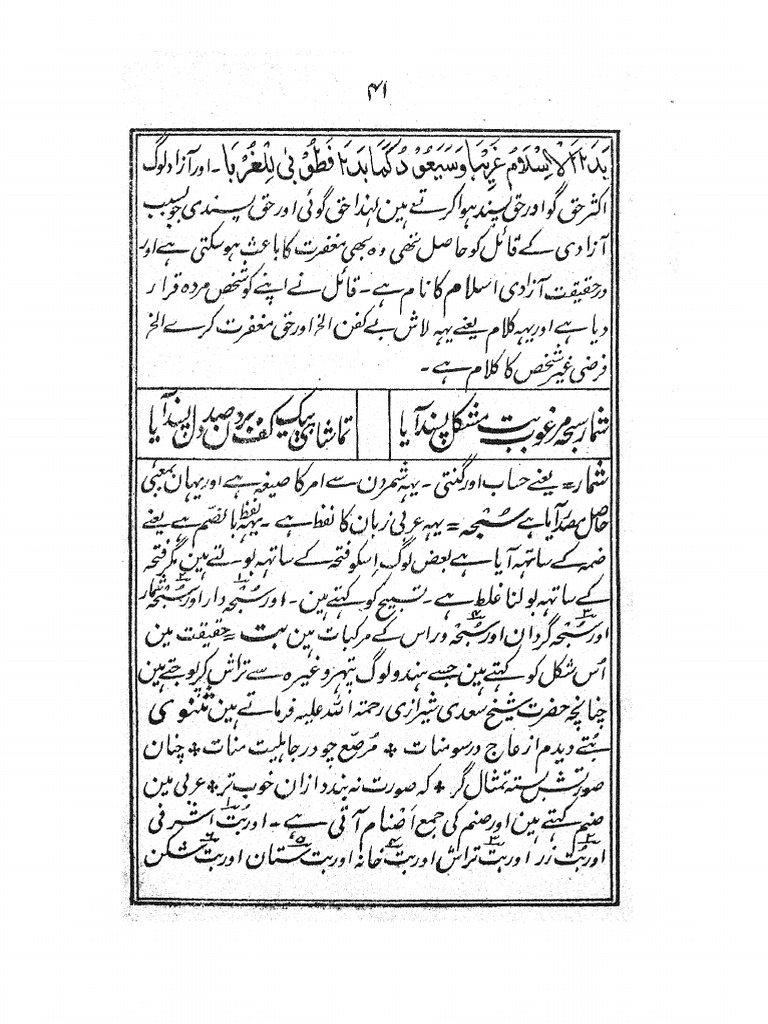 ۴۱
بَدَءَ الْاِسْلَامُ غَرِیْبًا وَسَیَعُوْدُ کَمَا بَدَءَ فَطُوْبیٰ لِلْغُرْبَا۔ اور آزاد لوگ
اکثر حق گو اور حق پسند ہوا کرتے ہین لہذا حق گوئی اور حق پسندی جو بسبب
آزادی کے قائل کو حاصل تھی وہ بھی مغفرت کا باعث ہو سکتی ہے اور
در حقیقت آزادی اسلام کا نام ہے۔ قائل نے اپنے کو شخص مردہ قرار
دیا ہے اور یہہ کلام یعنے یہہ لاش بے کفن الخ اور حق مغفرت کرے الخ
فرضی غیر شخص کا کلام ہے۔
شمار سبحہ مرغوب بت مشکل پسند آیا
تماشاے بیک کف بردن صد دل پسند آیا
شمار= یعنے حساب اور گنتی۔ یہہ شمردن سے امر کا صیغہ ہے اور یہان بمعنی
حاصل مصدر آیا ہے سُبْحَہ= یہہ عربی زبان کا لفظ ہے۔ یہہ لفظ بالضم ہے یعنے
ضمہ کے ساتہہ آیا ہے بعض لوگ اِسکو فتحہ کے ساتہہ بولتے ہین مگر فتحہ
کے ساتہہ بولنا غلط ہے۔ تسبیح کو کہتے ہین۔ اور سُبْحَہ دار اور سُبْحَہ شمار
اور سُبْحَہ گردان اور سُبْحَہ ور اس کے مرکبات ہین بت= حقیقت مین
اُس شکل کو کہتے ہین جسے ہندو لوگ پتہر وغیرہ سے تراش کر پوجتے ہین
چنانچہ حضرت شیخ سعدی شیرازی رحمتہ اللہ علیہ فرماتے ہین مثنوی
بُتے دیدم از عاج در سومنات * مُرصّع چو در جاہلیت منات * چنان
صورتش بستہ تمثال گر * کہ صورت نہ بندد ازان خوب تر * عربی مین
صنم کہتے ہین اور صنم کی جمع اَصْنام آتی ہے۔ اور بُت اشرفی
اور بُت زر اور بت تراش اور بت خانہ اور بت ستان اور بت شکن